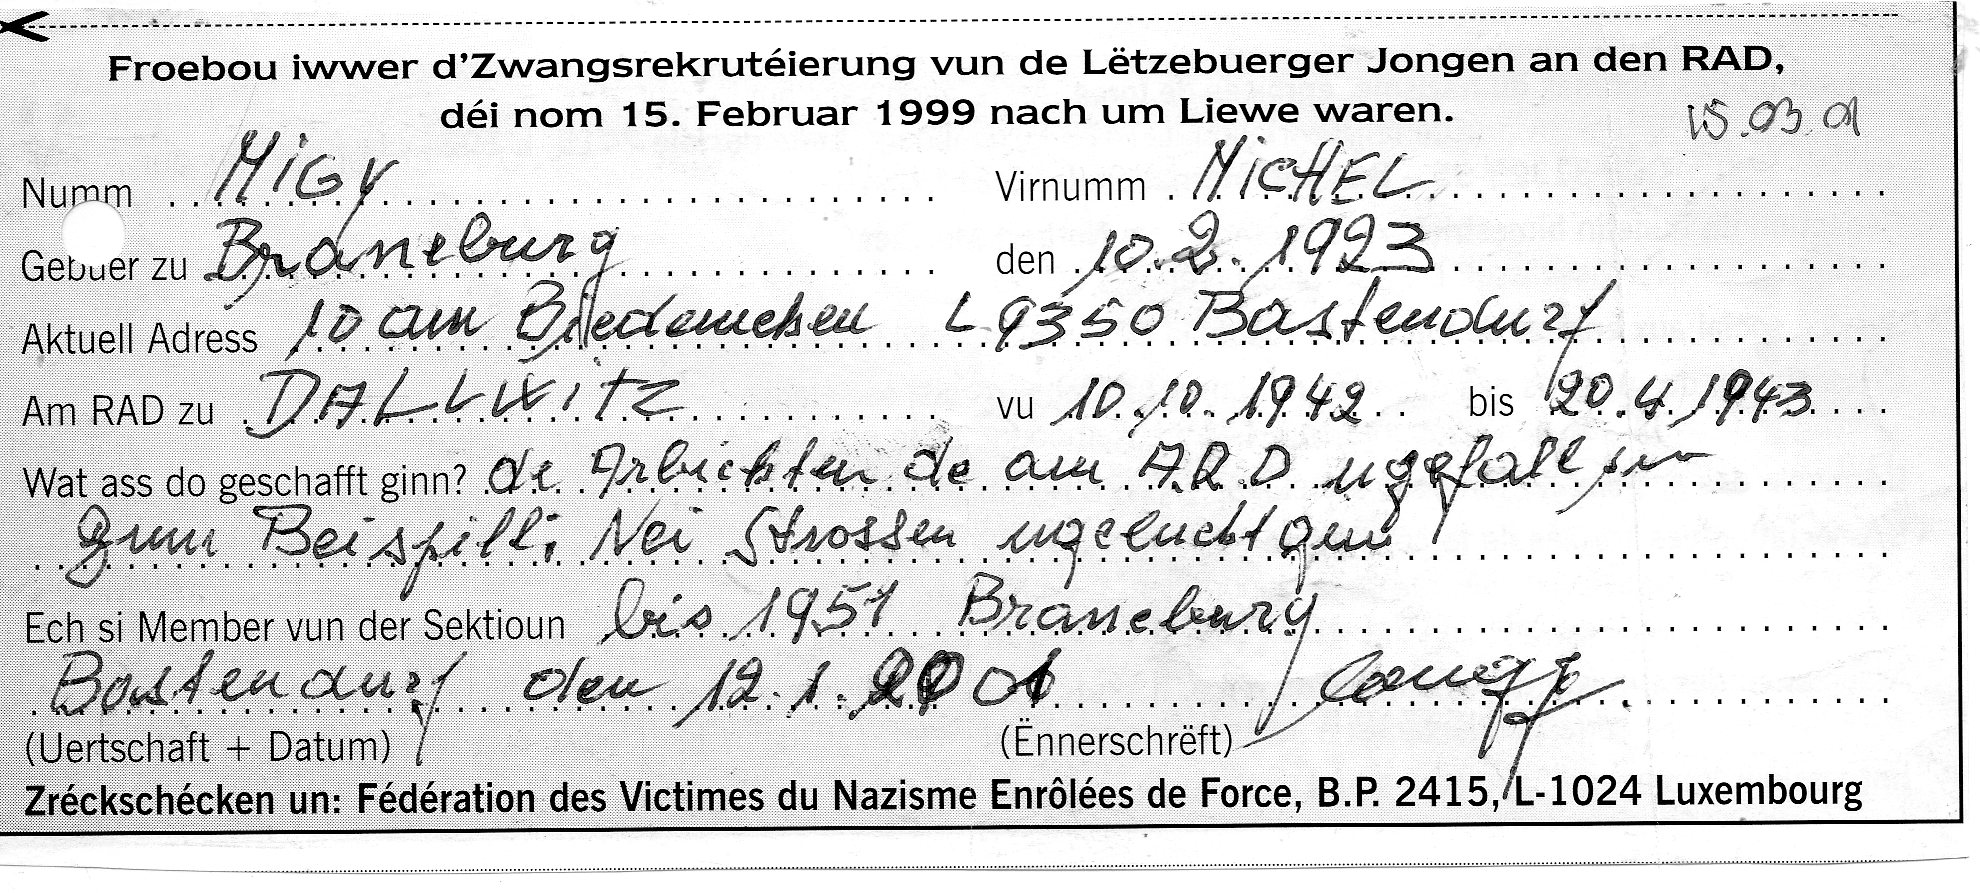 Froebou iwwer d'Zwangsrekrutéierung vun de Lëtzebuerger Jongen an den RAD,
déi nom 15. Februar 1999 nach um Liewe waren.
15.03.01
Numm MIGY Virnumm MICHEL
Gebuer zu Braneburg den 10.2.1923
Aktuell Adress 10 am L 9350 Bastendurf
Am RAD zu DALLWITZ vu 10.10.1942 bis 20.4.1943
Wat ass do geschafft ginn? de de am ugefall sin
zum Beispill: Nei Strossen ugeluecht gin
Ech si Member vun der Sektioun bis 1951 Braneburg
Bastendurf den 12.1.2001
(Uertschaft + Datum) (Ënnerschrëft)
Zréckschécken un: Fédération des Victimes du Nazisme Enrôlées de Force, B.P. 2415, L-1024 Luxembourg